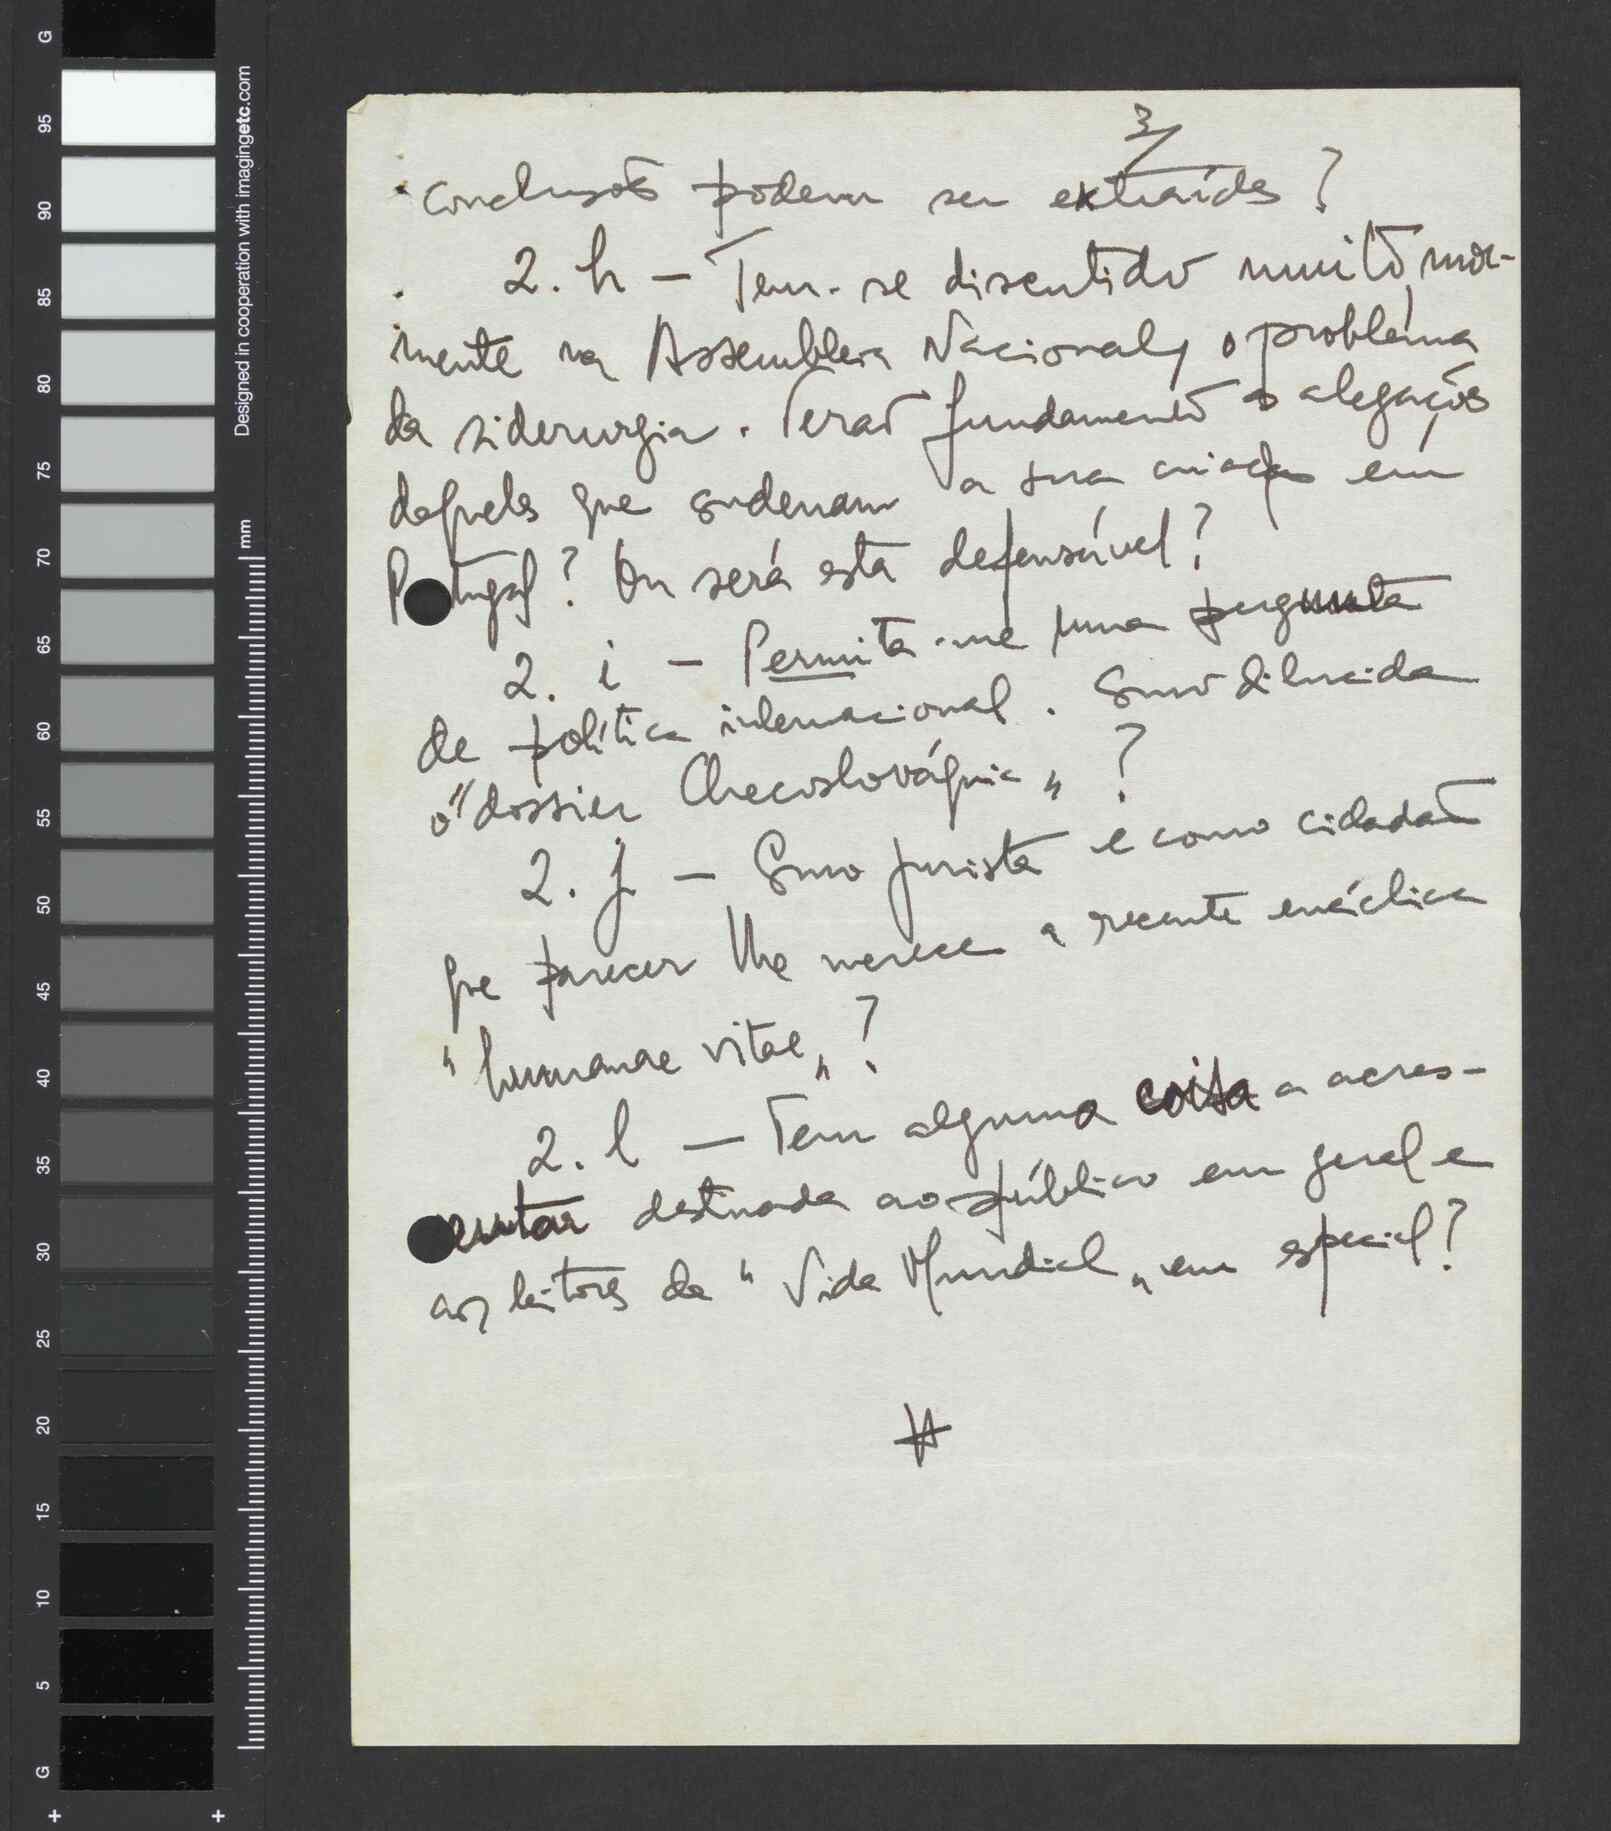 G
95
90
85
80
75
70
65
60
55
50
45
40
35
30
25
20
15
10
5
G
Designed in cooperation with imagingetc.com
mm
3/
conclusões podem ser extraídas?
2. h — Tem-se discutido muito, mor-
mente na Assembleia Nacional, o problema
da siderurgia. Terão fundamento as alegações
daqueles que condenam a sua criação em
Portugal? Ou será esta defensável?
2. i — Permita-me uma pergunta
de política internacional. Como dilucida
o "dossier Checoslováquia"?
2. j — Como jurista e como cidadão
que parecer lhe merece a recente encíclica
"humanae vitae"?
2. l — Tem alguma coisa a acres-
centar destinada ao público em geral e
aos leitores da "Vida Mundial" em especial?